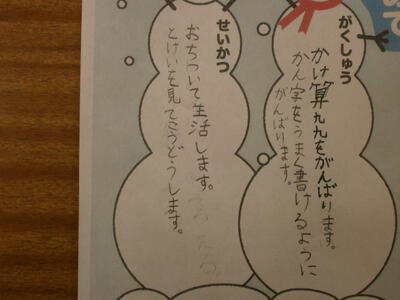 がくしゅう
かけ算九九をがんばります。
かん字をうまく書けるように
がんばります。
せいかつ
おちついて生活します。
とけいを見てこうどうします。